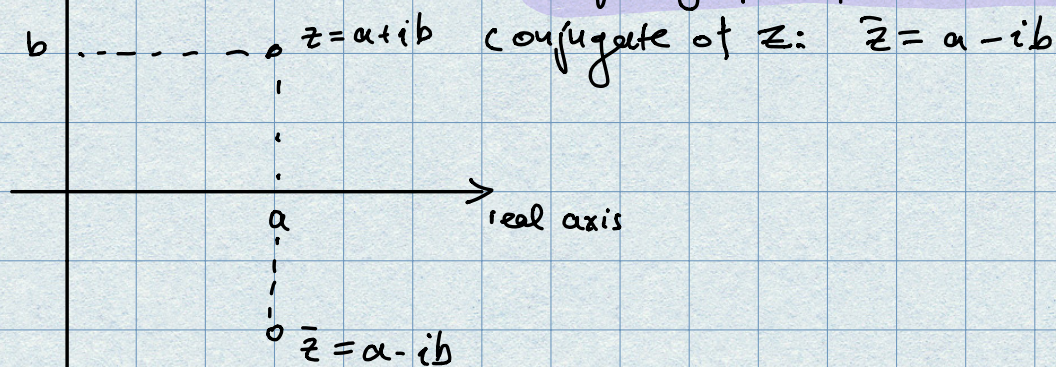 b
z = a + ib
conjugate of z: z̄ = a - ib
a
real axis
z̄ = a - ib